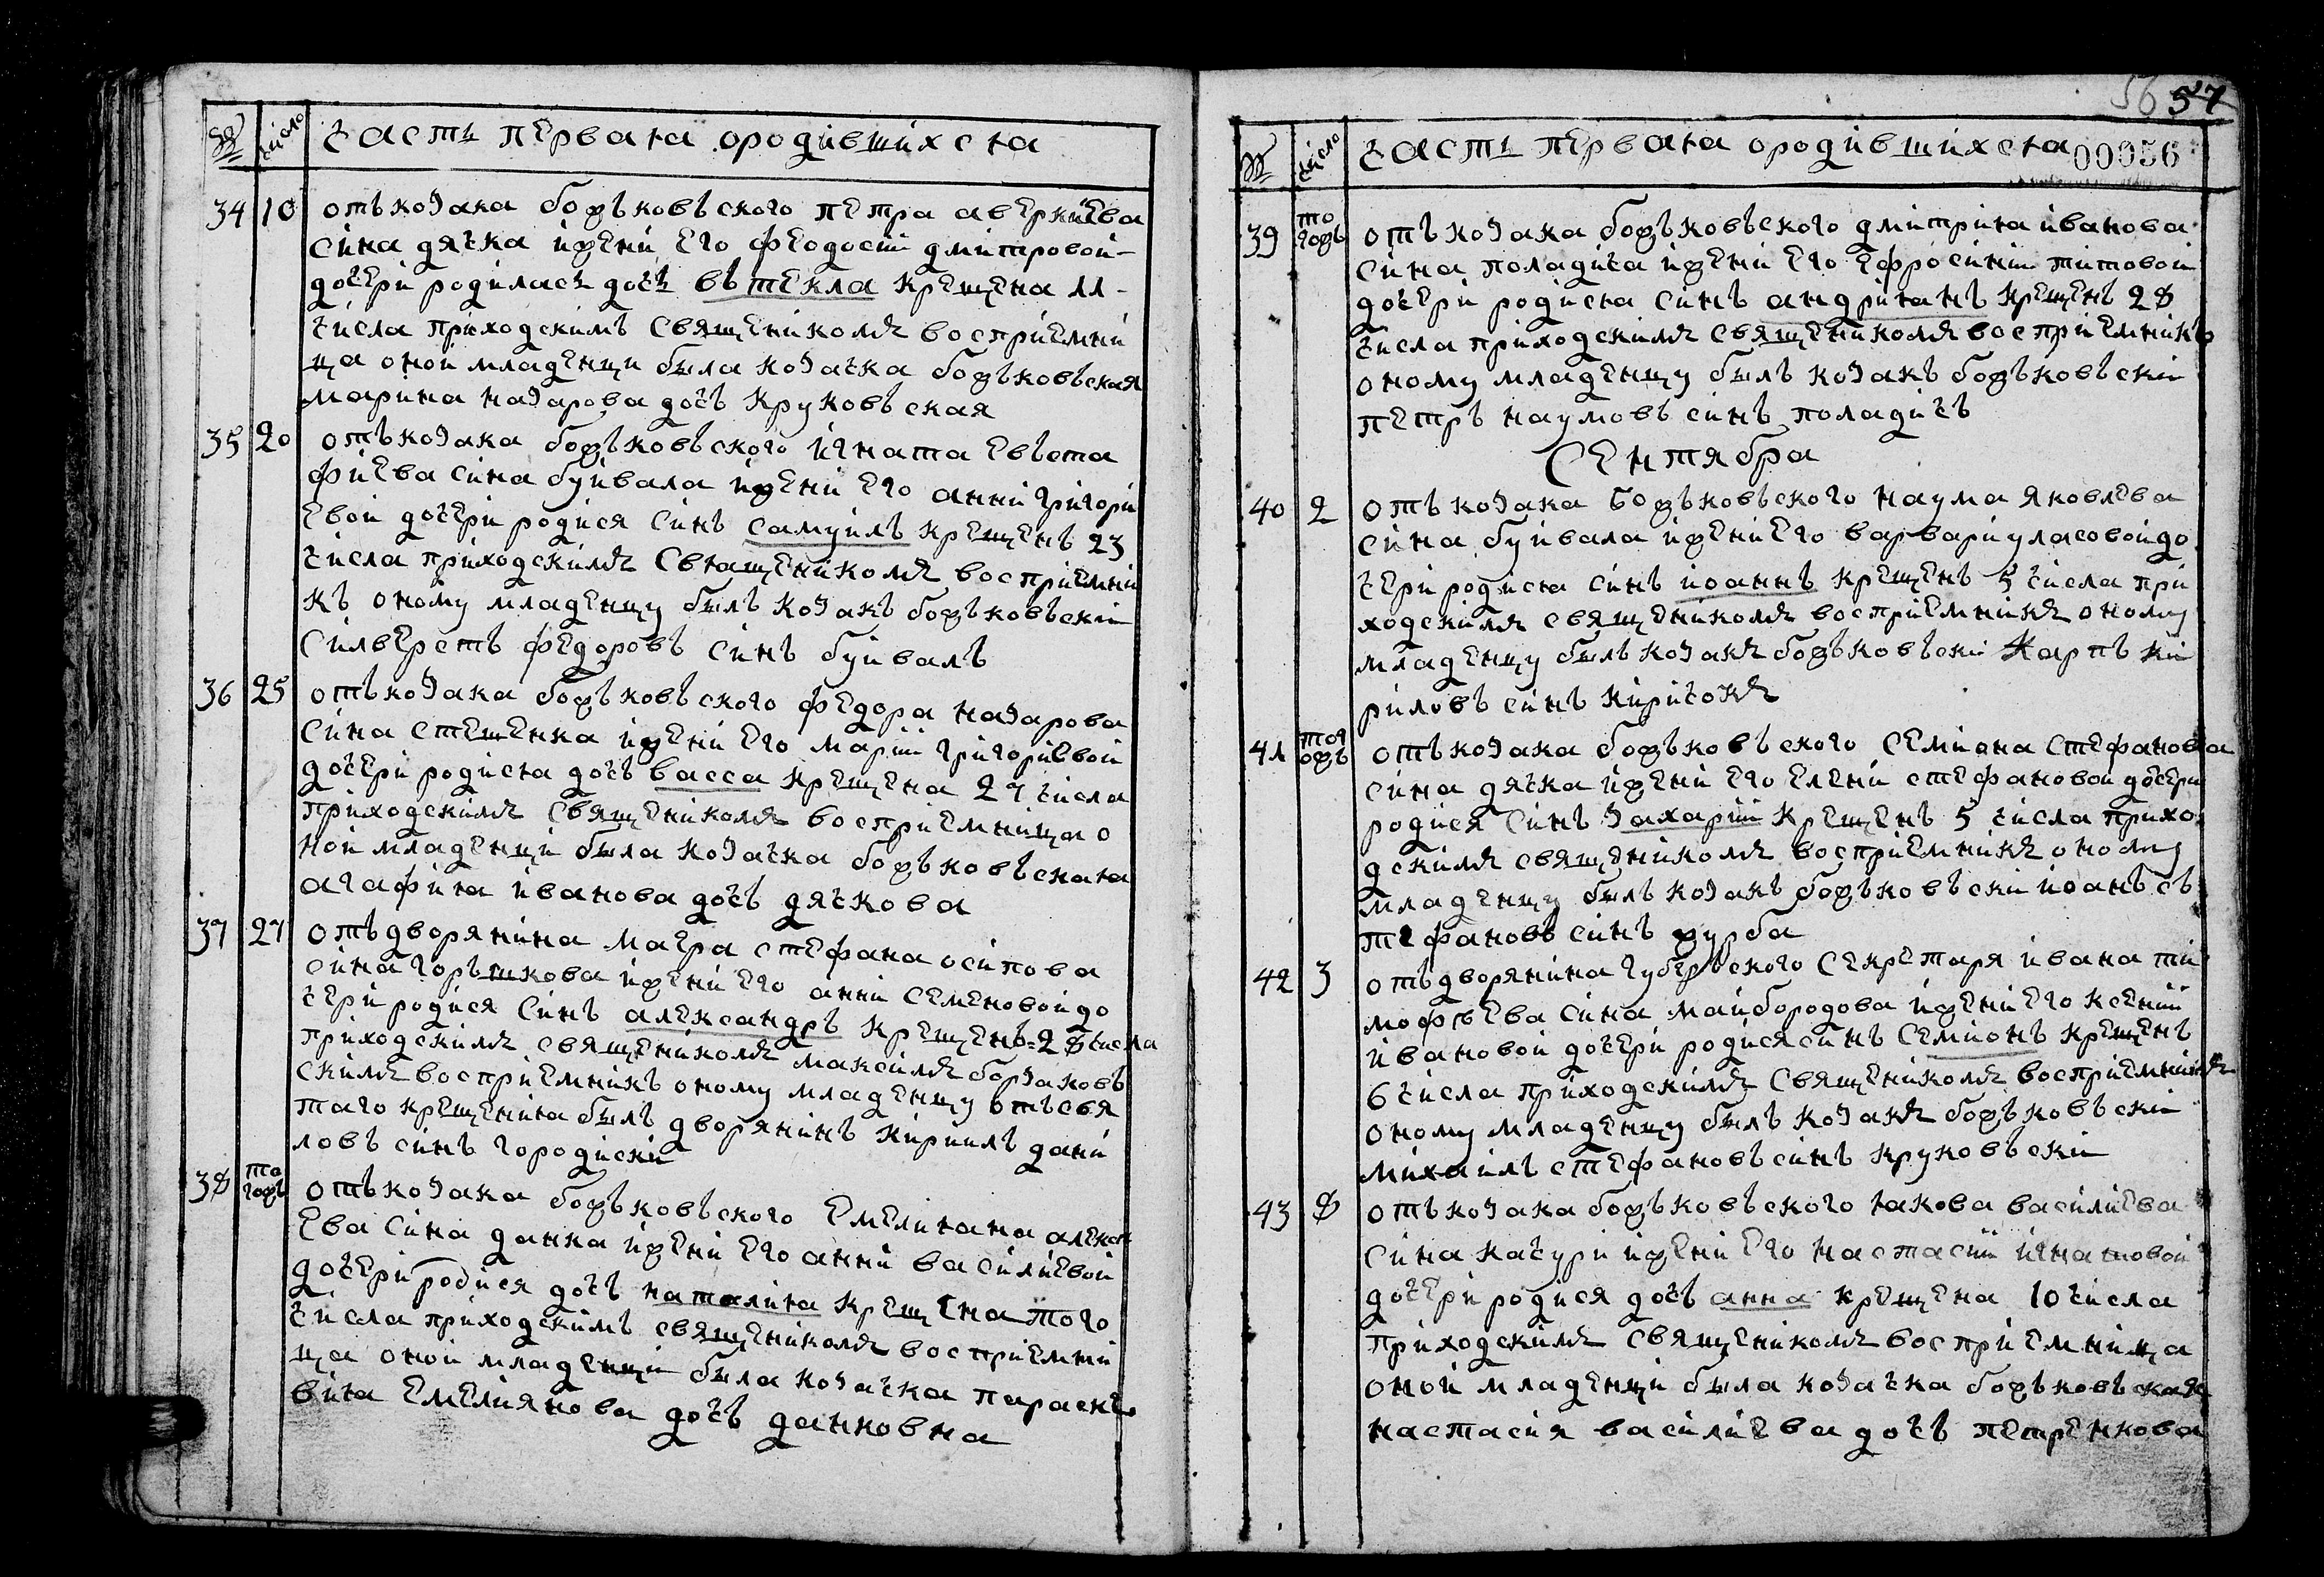 число Часть первая ородившихся
34 10 отъ козака божъковъского петра аверкиева
сина дячка ижени его феодосіи дмитровой
дочери родилась дочь въ текла крещена 11
числа приходскимъ священикомъ восприемни
ца оной младенци была козачка божъковъская
марина назарова дочъ круковъская
35 20 отъ козака божъковъского игната евъста
фиева сина буйвала ижени его анни григори
евой дочери родися синъ самуилъ крещенъ 23
числа приходскимъ священикомъ восприемни
къ оному младенцу былъ козакъ божъковъскій
Силверстъ федоровъ синъ буйвалъ
36 25 отъ козака божъковъского федора назарова
сина стешенка ижени его маріи григориевой
дочери родися дочъ васса крещена 27 числа
приходскимъ священикомъ восприемница о
ной младенци была козачка божъковъская
агафия иванова дочъ дячкова
37 27 отъ дворянина маера стефана осипова
сина горъшкова ижени его анни семеновой до
чери родися синъ александръ крещенъ 28 числа
приходскимъ священикомъ максимъ борзаковъ
скимъ восприемникъ оному младенцу отъ свя
таго крещения былъ дворянинъ кирилъ дани
ловъ синъ городиски
38 то
гожъ отъ козака божъковъского емелияна алексѣ
ева сина данка ижени его анни василиевой
дочери родися дочъ наталия крещена того
числа приходскимъ священикомъ восприемни
ца оной младенци была козачка параскѣ
вия емелиянова дочъ данковна
56 57
число Часть первая ородившихся 00056
39 то
гожъ отъ козака божъковъского дмитрия иванова
сина поладича ижени его ефросиніи титовой
дочери родися синъ андриянъ крещенъ 28
числа приходскимъ священикомъ восприемникъ
оному младенцу былъ козакъ божъковъскій
петръ наумовъ синъ поладичъ
Сентября
40 2 отъ козака божъковъского наума яковлева
сина буйвала ижени его варвари уласовой до
чери родися синъ иоаннъ крещенъ 5 числа при
ходскимъ священикомъ восприемникъ оному
младенцу былъ козакъ божъковъскій карпъ ки
риловъ синъ киричокъ
41 тог
ожъ отъ козака божъковъского семиона стефанова
сина дячка ижени его елени стефановой дочери
родися синъ захарій крещенъ 5 числа прихо
дскимъ священикомъ восприемникъ оному
младенцу былъ козакъ божъковъскій иоанъ съ
тефановъ синъ журба
42 3 отъ дворянина губеръского секретаря ивана ти
мофѣева сина майбородова ижени его ксении
ивановой дочери родися синъ семионъ крещенъ
6 числа приходскимъ священикомъ восприемникъ
оному младенцу былъ козакъ божъковъскій
михаилъ стефановъ синъ круковъскій
43 8 отъ козака божъковъского якова василиева
сина качури ижени его настасіи игнатовой
дочери родися дочъ анна крещена 10 числа
приходскимъ священикомъ восприемница
оной младенци была козачка божъковъская
настасия василиева дочъ петренкова